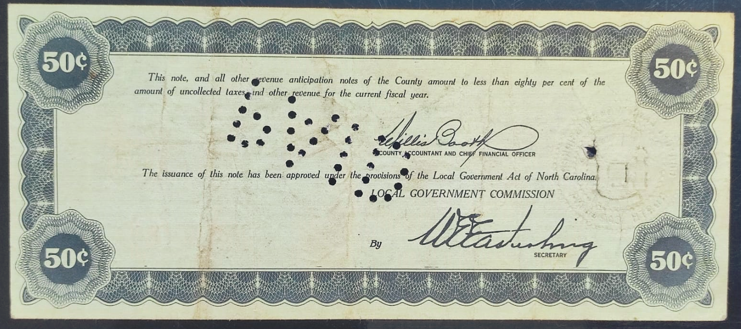 50¢ 50¢
This note, and all other revenue anticipation notes of the County amount to less than eighty per cent of the
amount of uncollected taxes and other revenue for the current fiscal year.
Willis Booth
COUNTY ACCOUNTANT AND CHIEF FINANCIAL OFFICER
The issuance of this note has been approved under the provisions of the Local Government Act of North Carolina.
LOCAL GOVERNMENT COMMISSION
By
SECRETARY
50¢ 50¢